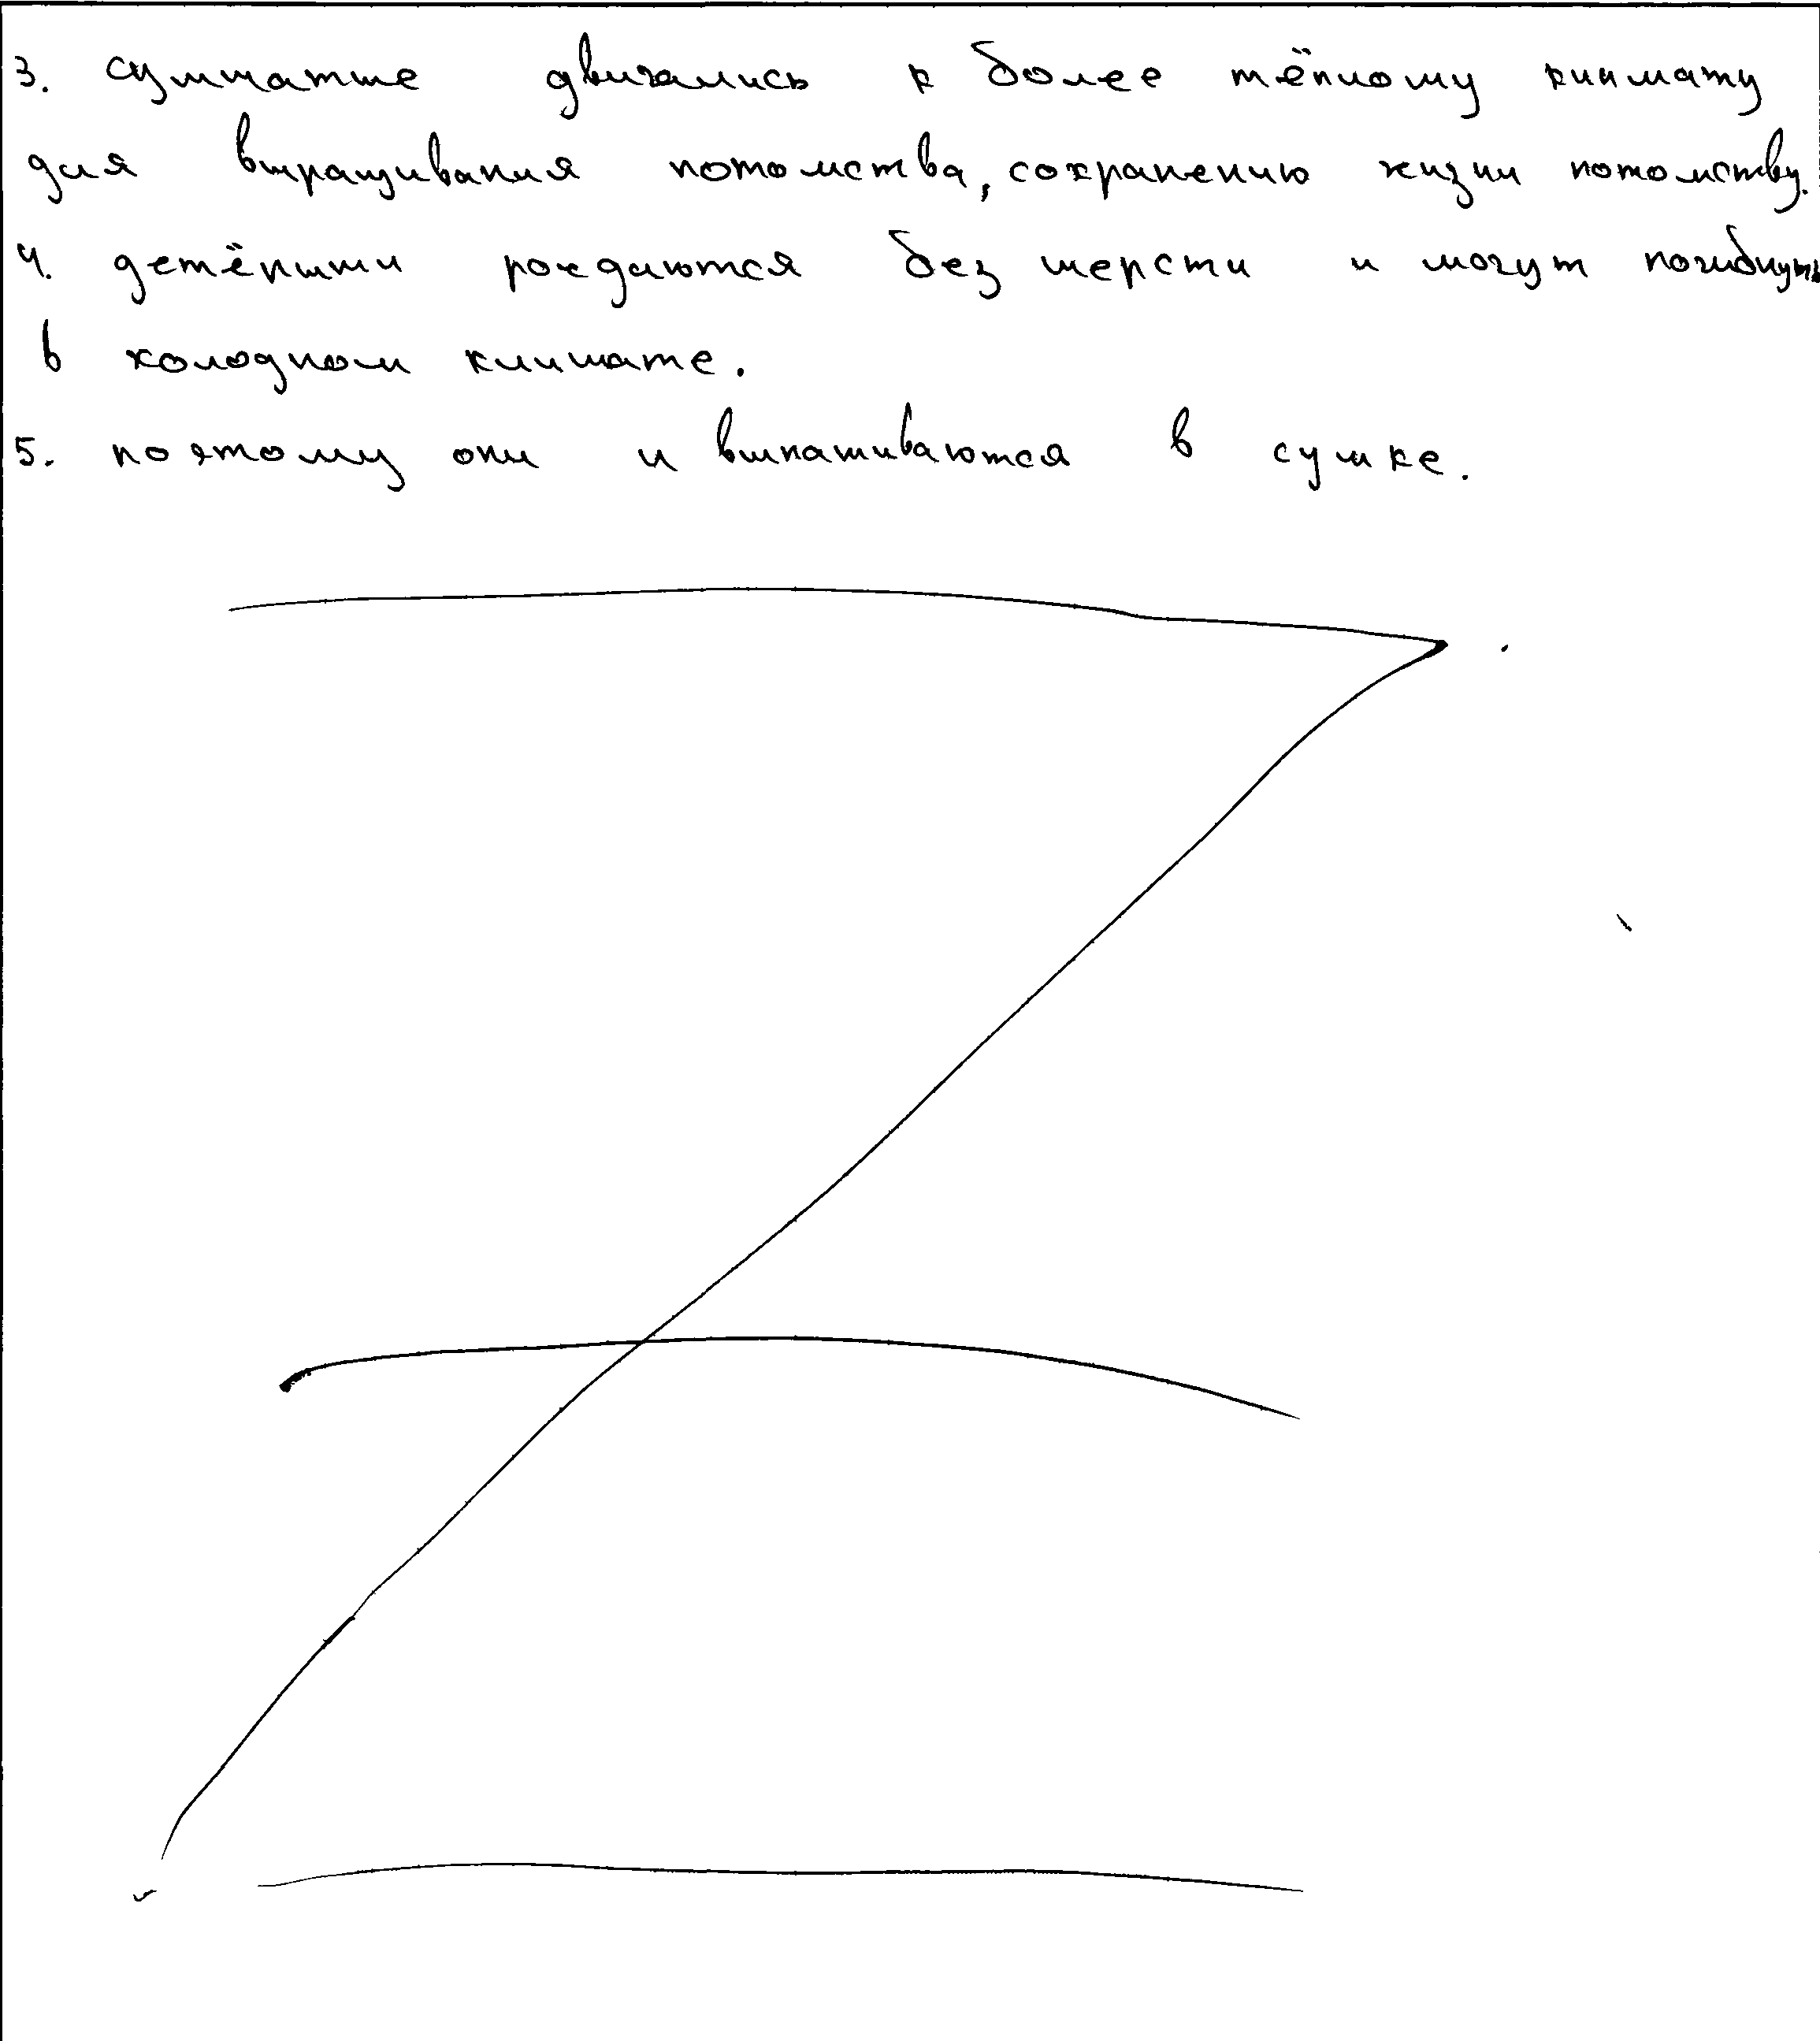 3. сумчатые двигались к более тёплому климату
для выращивания потомства, сохранению жизни потомству.
4. детёныши рождаются без шерсти и могут погибнуть
в холодном климате.
5. поэтому они и вынашиваются в сумке.